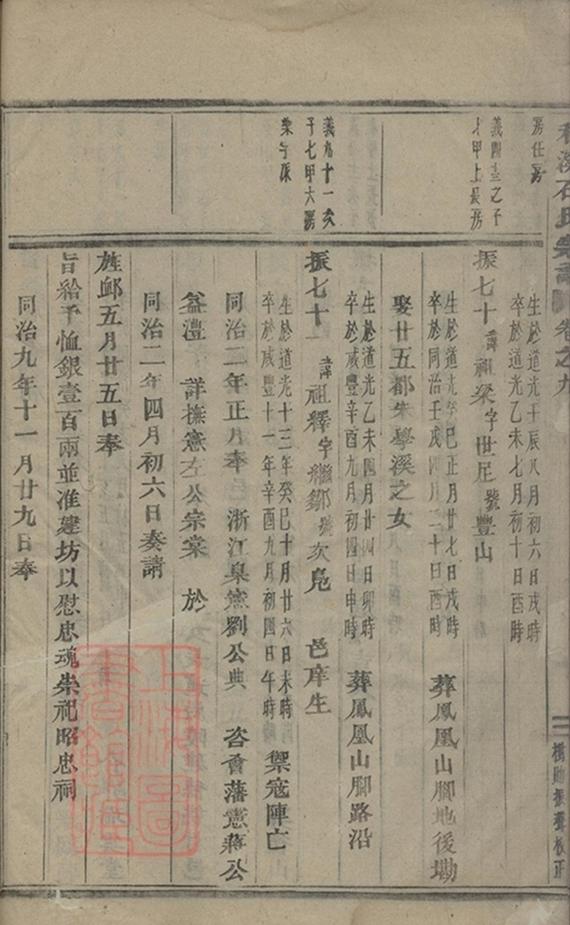 石氏宗譜 卷之九
房仕房
義四 之子
甲上長房
生於道光壬辰八月初六日戌時
卒於道光乙未七月初十日酉時
振七十 諱祖梁字世臣號豐山
生於道光癸巳正月廿七日戌時
卒於同治壬戌四月二十日酉時 葬鳳凰山腳地後塝
娶廿五都朱學溪之女
生於道光乙未四月廿四日卯時
卒於咸豐辛酉九月初四日申時 葬鳳凰山腳路沿
義 十一次
子七甲六房
振七十一 諱祖釋字繼鄒號次 邑庠生
生於道光十三年癸巳十月廿六日未時
卒於咸豐十一年辛酉九月初四日午時 禦寇陣亡
同治二年正月奉 浙江臬憲劉公典 咨會藩憲蔣公
益澧 詳撫憲左公宗棠 於
同治二年四月初六日奏請
旌卹五月廿五日奉
旨給予恤銀壹百兩並准建坊以慰忠魂崇祀昭忠祠
同治九年十一月廿九日奉
校正
上海圖書館藏